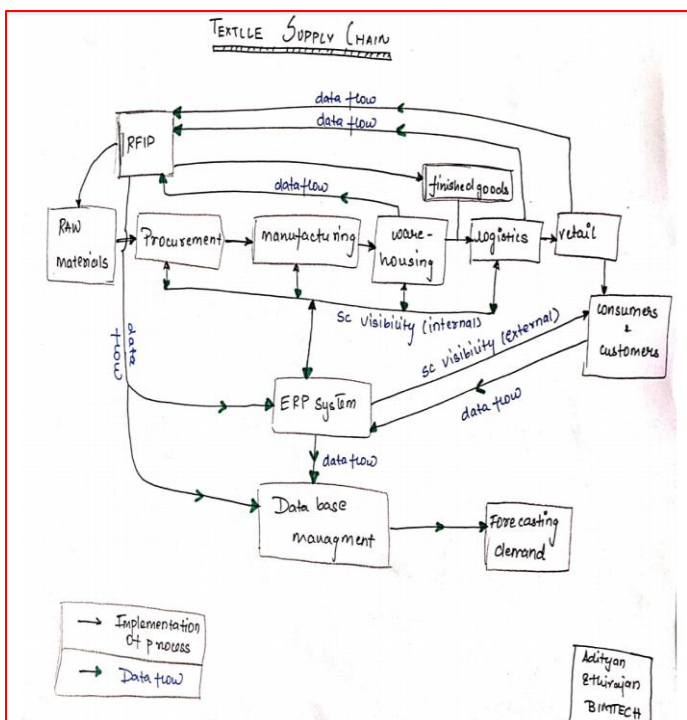 TEXTLLE SUPPLY CHAIN
data flow
data flow
RFIP
data flow
finished goods
RAW
materials
Procurement
manufacturing
ware-
housing
logistics
retail
SC visibility (internals)
consumers
&
customers
SC visibility (external)
data flow
data
flow
ERP System
data flow
Data base
managment
Forecasting
demand
Implementation
of process
Data flow
Adityan
Ethirajan
BIMTECH